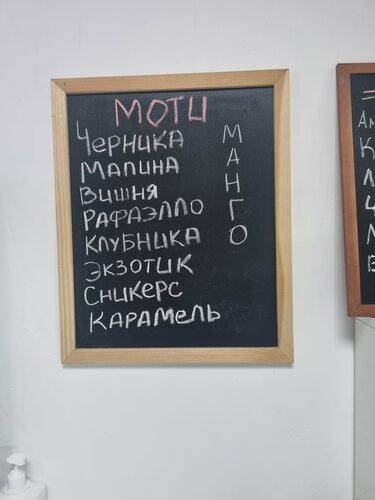 МОТИ
ЧЕРНИКА
МАЛИНА
ВИШНЯ
РАФАЭЛЛО
КЛУБНИКА
ЭКЗОТИК
СНИКЕРС
КАРАМЕЛЬ
МАНГО